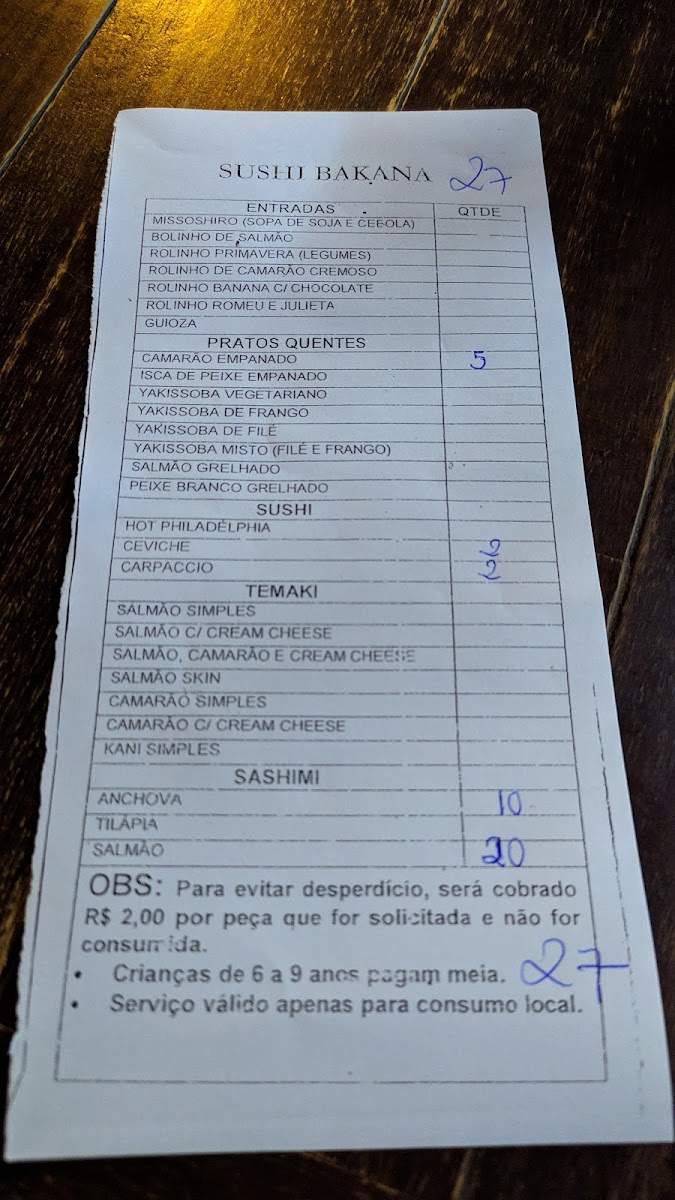 SUSHI BAKANA 27
ENTRADAS QTDE
MISSOSHIRO (SOPA DE SOJA E CEBOLA)
BOLINHO DE SALMÃO
ROLINHO PRIMAVERA (LEGUMES)
ROLINHO DE CAMARÃO CREMOSO
ROLINHO BANANA C/ CHOCOLATE
ROLINHO ROMEU E JULIETA
GUIOZA
PRATOS QUENTES
CAMARÃO EMPANADO 5
ISCA DE PEIXE EMPANADO
YAKISSOBA VEGETARIANO
YAKISSOBA DE FRANGO
YAKISSOBA DE FILÉ
YAKISSOBA MISTO (FILÉ E FRANGO)
SALMÃO GRELHADO
PEIXE BRANCO GRELHADO
SUSHI
HOT PHILADÉLPHIA
CEVICHE 2
CARPACCIO 2
TEMAKI
SALMÃO SIMPLES
SALMÃO C/ CREAM CHEESE
SALMÃO, CAMARÃO E CREAM CHEESE
SALMÃO SKIN
CAMARÃO SIMPLES
CAMARÃO C/ CREAM CHEESE
KANI SIMPLES
SASHIMI
ANCHOVA 10
TILÁPIA
SALMÃO 20
OBS: Para evitar desperdício, será cobrado
R$ 2,00 por peça que for solicitada e não for
consumida.
• Crianças de 6 a 9 anos pagam meia. 27
• Serviço válido apenas para consumo local.